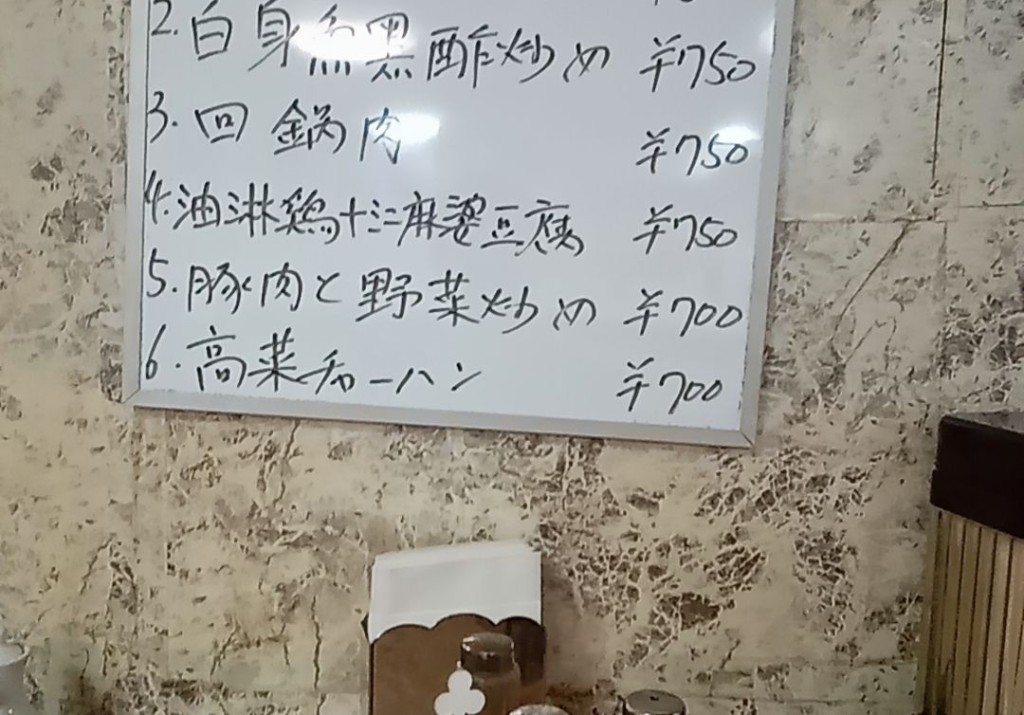 2. 白身魚黒酢炒め ¥750
3. 回鍋肉 ¥750
4. 油淋鶏+ミニ麻婆豆腐 ¥750
5. 豚肉と野菜炒め ¥700
6. 高菜チャーハン ¥700